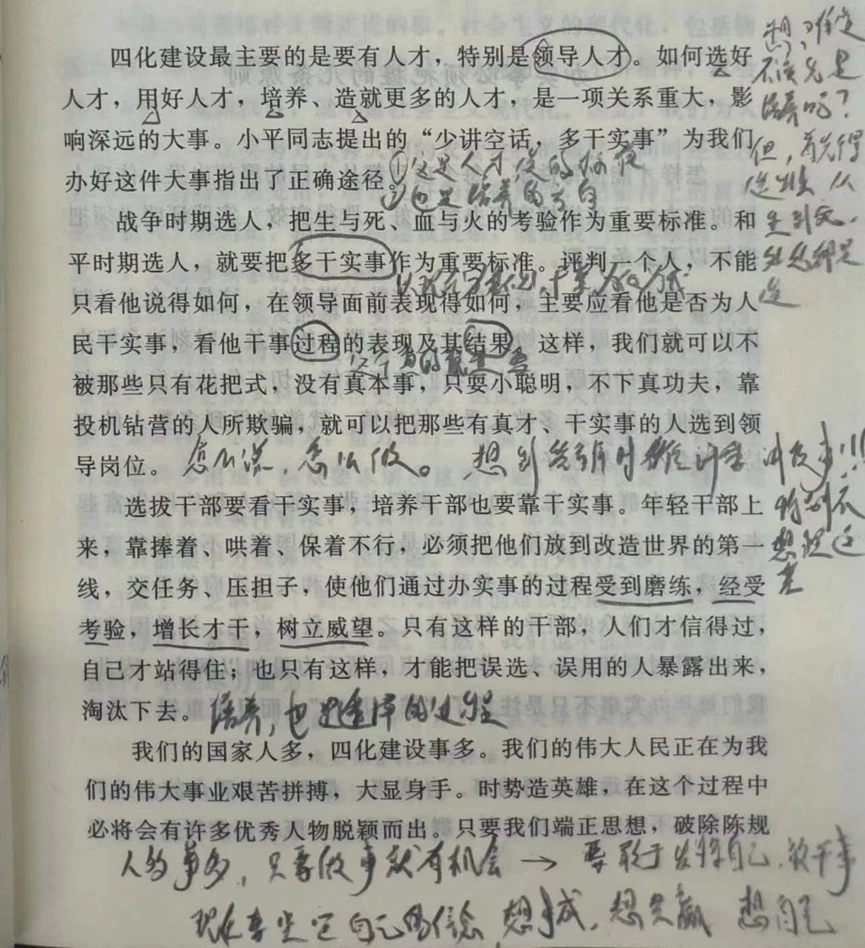 四化建设最主要的是要有人才，特别是领导人才。如何选好
人才，用好人才，培养、造就更多的人才，是一项关系重大，影
响深远的大事。小平同志提出的“少讲空话，多干实事”为我们
办好这件大事指出了正确途径。
①这是人才使的
②也是培养的
战争时期选人，把生与死、血与火的考验作为重要标准。和
平时期选人，就要把多干实事作为重要标准。评判一个人，不能
只看他说得如何，在领导面前表现得如何，主要应看他是否为人
民干实事，看他干事过程的表现及其结果。这样，我们就可以不
被那些只有花把式，没有真本事，只耍小聪明，不下真功夫，靠
投机钻营的人所欺骗，就可以把那些有真才、干实事的人选到领
导岗位。
怎么说，怎么做。想到
选拔干部要看干实事，培养干部也要靠干实事。年轻干部上
来，靠捧着、哄着、保着不行，必须把他们放到改造世界的第一
线，交任务、压担子，使他们通过办实事的过程受到磨练，经受
考验，增长才干，树立威望。只有这样的干部，人们才信得过，
自己才站得住；也只有这样，才能把误选、误用的人暴露出来，
淘汰下去。
培养，也是选择的过程
我们的国家人多，四化建设事多。我们的伟大人民正在为我
们的伟大事业艰苦拼搏，大显身手。时势造英雄，在这个过程中
必将会有许多优秀人物脱颖而出。只要我们端正思想，破除陈规
人多事多，只要做事就有机会→要敢于发挥自己，敢干事
自己的信念，想成，想赢 想自己